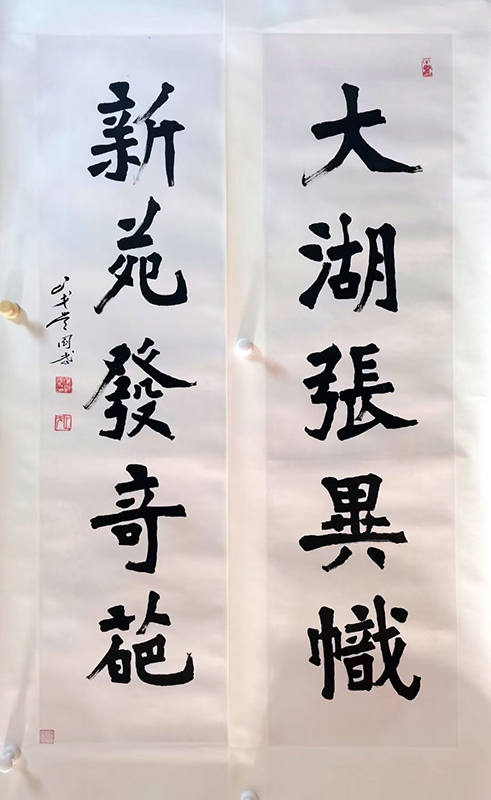 大湖張異幟
新苑發奇葩